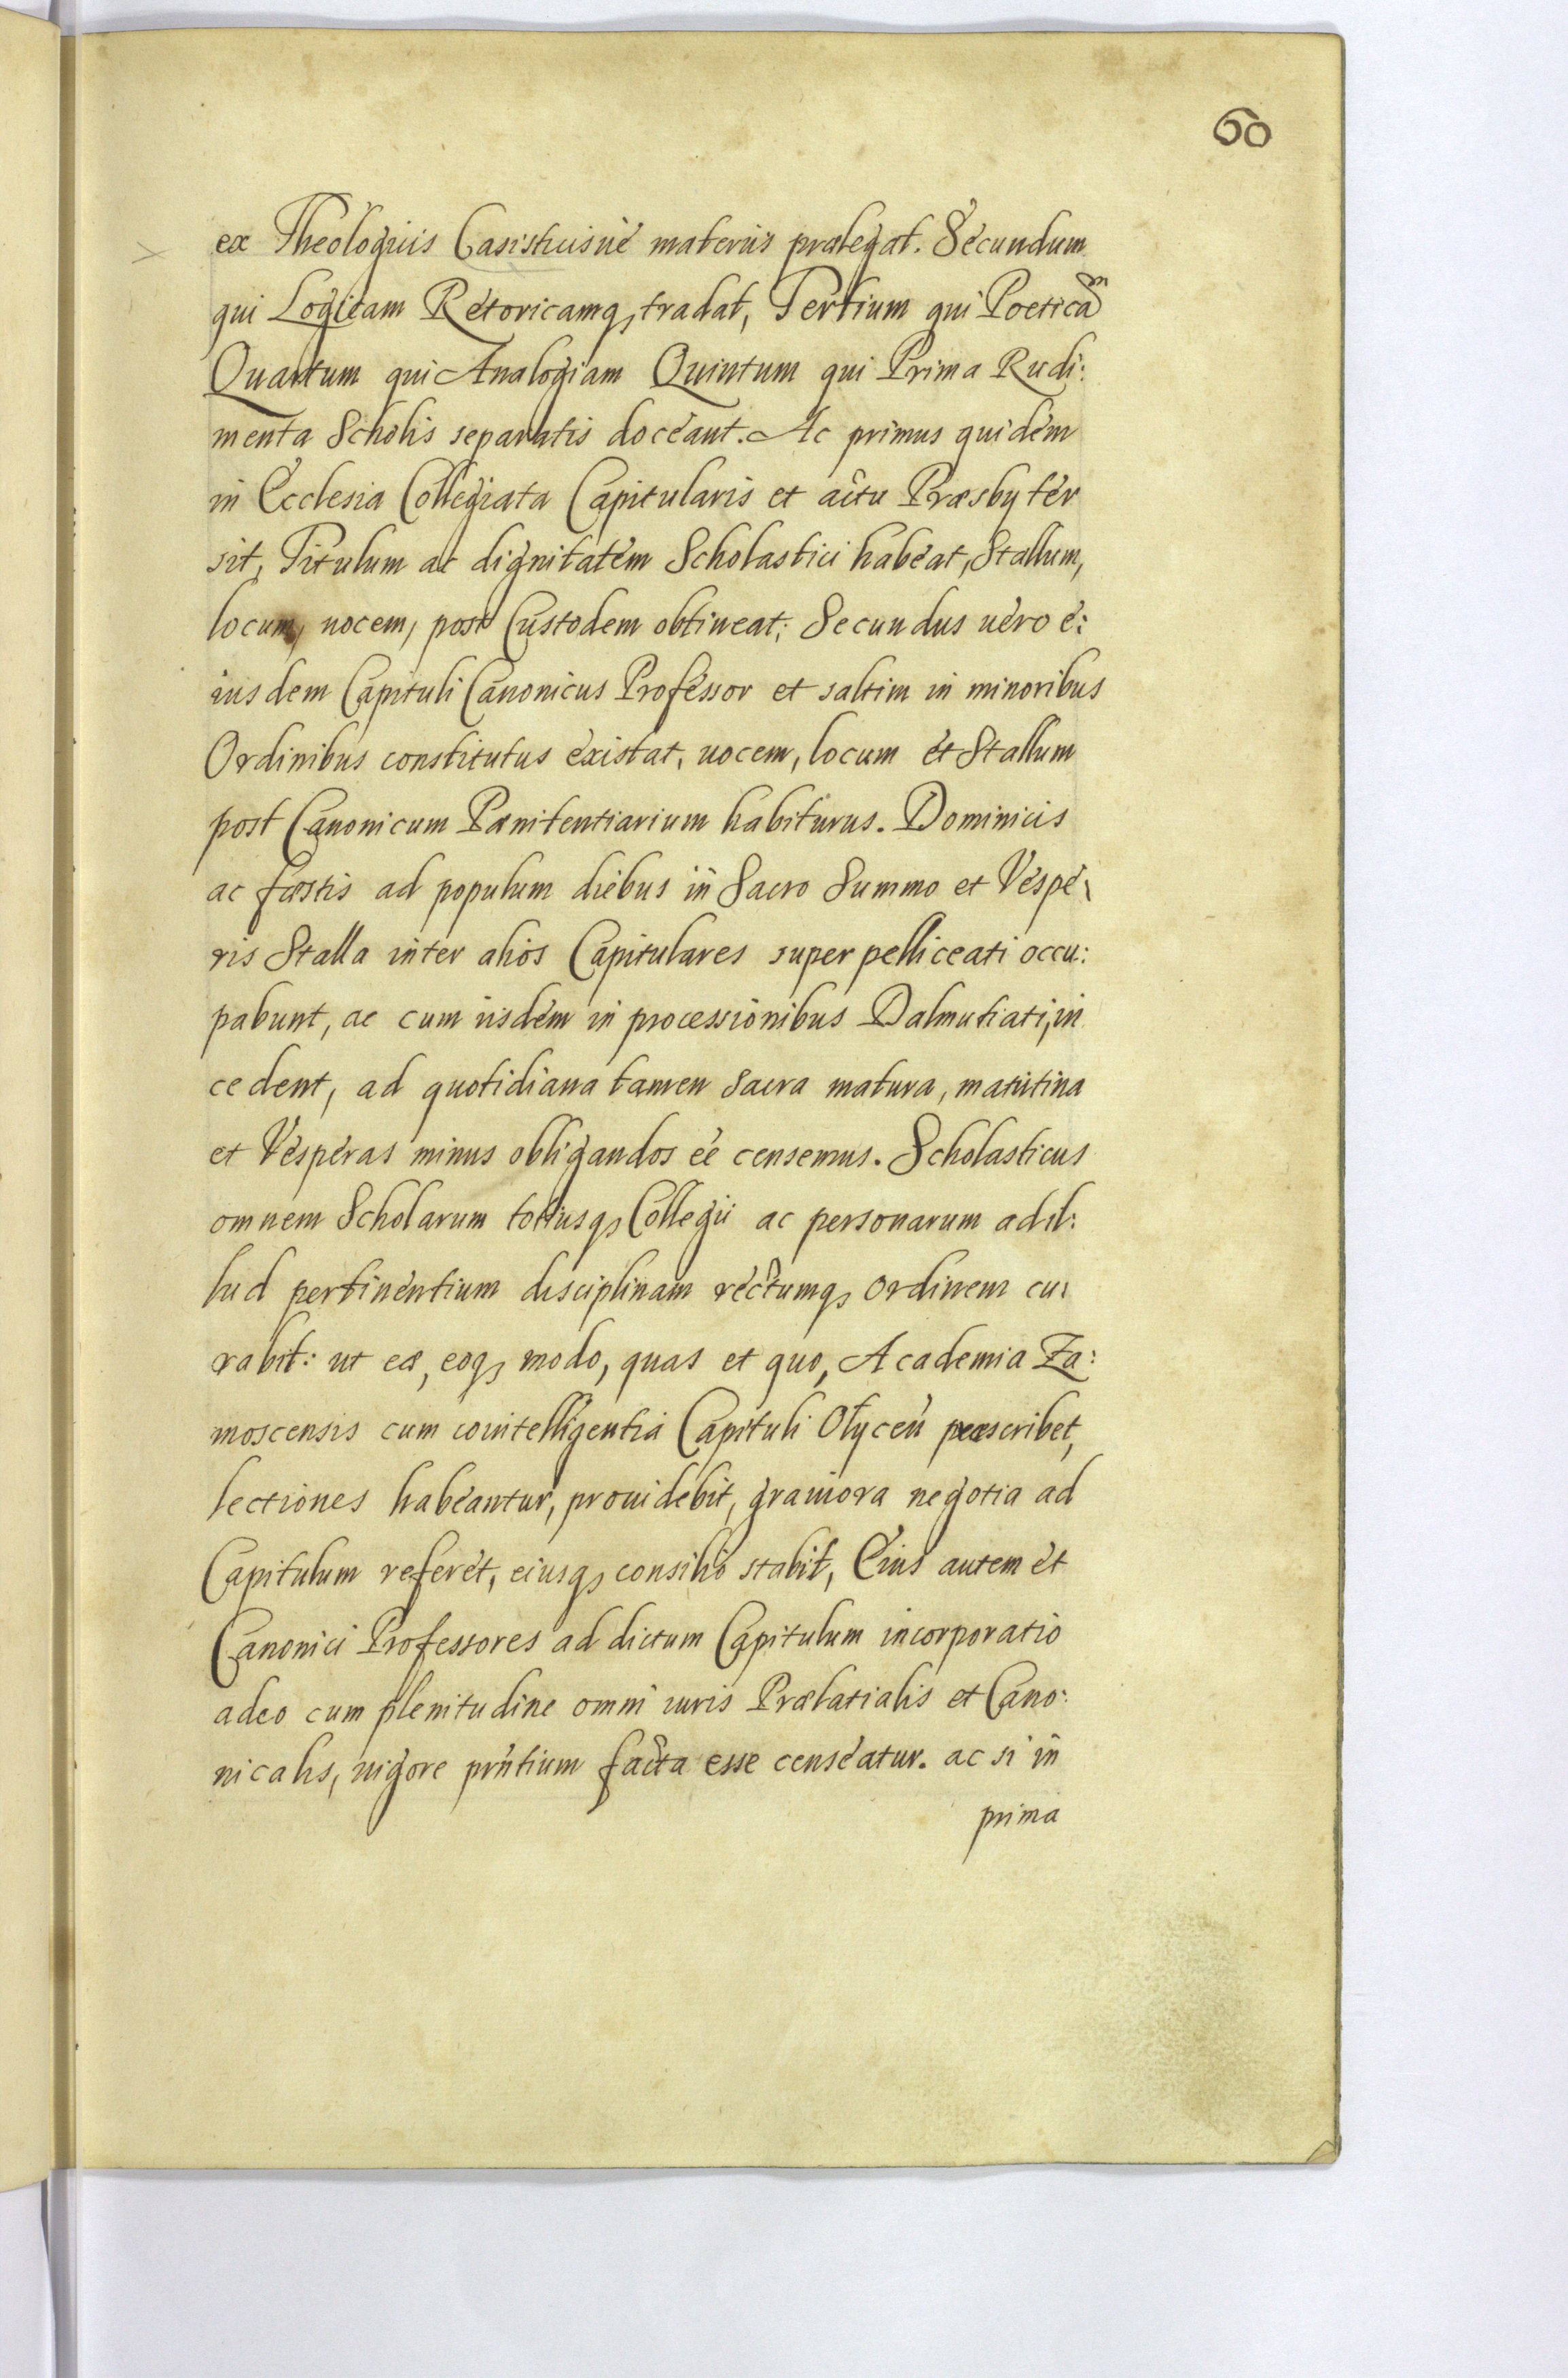 60
ex Theologicis Casisticisuè materiis prælegat. Secundum
qui Logicam Retoricamq, tradat, Tertium qui Poeticam
Quartum qui Analogiam Quintum qui Prima Rudi:
menta Scholis separatis doceant. Ac primus quidem
in Ecclesia Collegiata Capitularis et actu Præsbyter
sit, Titulum ac dignitatem Scholastici habeat, Stallum,
locum, uocem, post Custodem obtineat; Secundus uero e:
iusdem Capituli Canonicus Professor et saltim in minoribus
Ordinibus constitutus existat, uocem, locum et Stallum
post Canonicum Pænitentiarium habiturus. Dominicis
ac fæstis ad populum diebus in Sacro Summo et Vespe:
ris Stalla inter alios Capitulares superpelliceati occu:
pabunt, ac cum iisdem in processionibus Dalmutiati, in
cedent, ad quotidiana tamen Sacra matura, matutina
et Vesperas minus obligandos eé censemus. Scholasticus
omnem Scholarum totiusq, Collegii ac personarum ad il:
lud pertinentium disciplinam rectumq, ordinem cu:
rabit: ut eæ, eoq, modo, quas et quo, Academia Za:
moscensis cum cointelligentia Capituli Olyceń præscribet,
lectiones habeantur, prouidebit, grauiora negotia ad
Capitulum referet, eiusq, consilio stabit, Eius autem et
Canonici Professores ad dictum Capitulum incorporatio
adeo cum plenitudine omni iuris Prælatialis et Cano:
nicalis, uigore prńtium facta esse censeatur. ac si in
prima